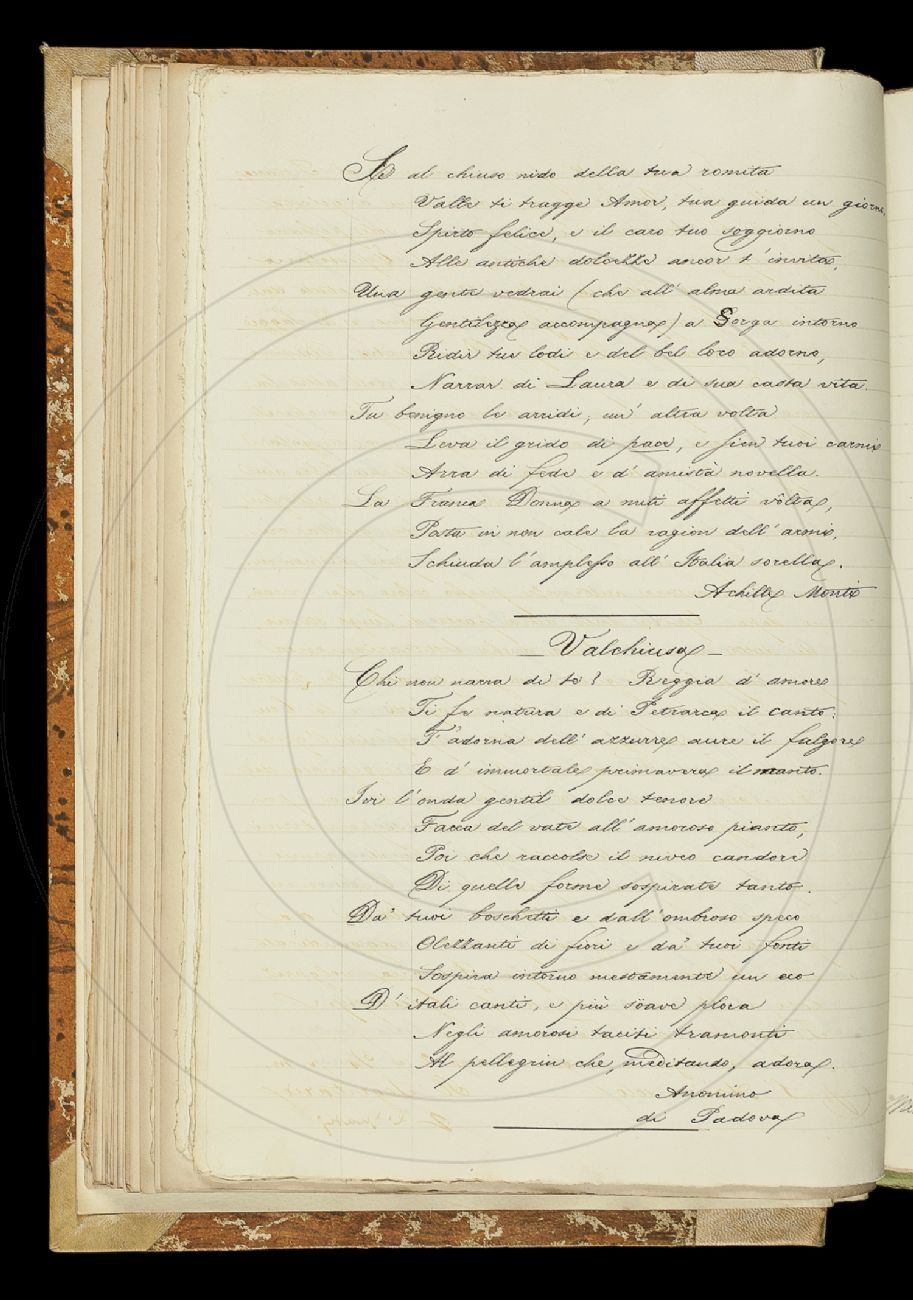 Se al chiuso nido della tua romita
Valle ti tragge Amor, tua guida un giorno,
Spirto felice, e il caro tuo soggiorno
Alle antiche dolcezze ancor t'invita,
Una gente vedrai (che all'alma ardita
Gentilezza accompagna) a Sorga intorno
Ridir tue lodi e del bel loco adorno,
Narrar di Laura e di sua casta vita.
Tu benigno le arridi; un'altra volta
Leva il grido di pace, e sien tuoi carmi
Arra di fede e d'amistà novella.
La Franca Donna a miti affetti vòlta,
Posta in non cale la ragion dell'armi,
Schiuda l'amplesso all'Italia sorella.
Achille Monti
Valchiusa
Chi non narra di te? Reggia d'amore
Ti fe natura e di Petrarca il canto:
T'adorna dell'azzurre aure il fulgore
E d'immortale primavera il manto.
Ivi l'onda gentil dolce tenore
Facea del vate all'amoroso pianto,
Poi che raccolse il niveo candore
Di quelle forme sospirate tanto.
Da' tuoi boschetti e dall'ombroso speco
Olezzanti di fiori e da' tuoi fonti
Sospira intorno mestamente un eco
D'itali canti, e più söave plora
Negli amorosi taciti tramonti
Al pellegrin che, meditando, adora.
Anonimo
di Padova